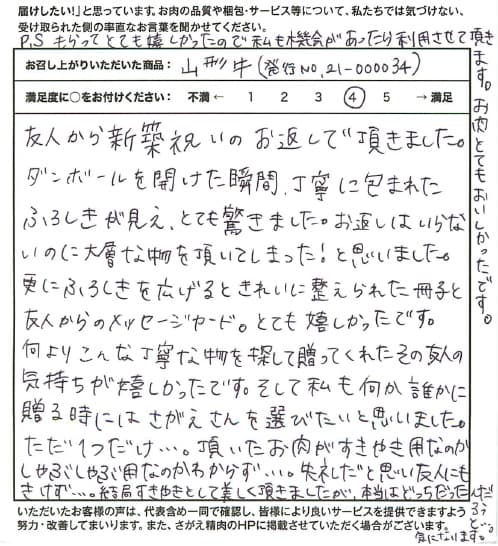 届けしたい!」と思っています。お肉の品質や梱包・サービス等について、私たちでは気づけない、
受け取られた側の率直なお言葉を聞かせてください。
P.S もらってとても嬉しかったので私も機会があったら利用させて頂き
ます。お肉とてもおいしかったです。
お召し上がりいただいた商品: 山形牛(発行NO,21-000034)
満足度に○をお付けください: 不満 ← 1 2 3 4 5 → 満足
友人から新築祝いのお返しで頂きました。
ダンボールを開けた瞬間、丁寧に包まれた
ふろしきが見え、とても驚きました。お返しはいらな
いのに大層な物を頂いてしまった!と思いました。
更にふろしきを広げるときれいに整えられた冊子と
友人からのメッセージカード。とても嬉しかったです。
何よりこんな丁寧な物を探して贈ってくれたその友人の
気持ちが嬉しかったです。そして私も何か誰かに
贈る時にはさがえさんを選びたいと思いました。
ただ1つだけ…。頂いたお肉がすきやき用なのか
しゃぶしゃぶ用なのかわからず…。失礼だと思い友人にも
きけず…。結局すきやきとして美しく頂きましたが、本当はどっちだったんだ
ろうと…。
気になります。
いただいたお客様の声は、代表含め一同で確認し、皆様により良いサービスを提供できますよう
努力・改善してまいります。また、さがえ精肉のHPに掲載させていただく場合がございます。